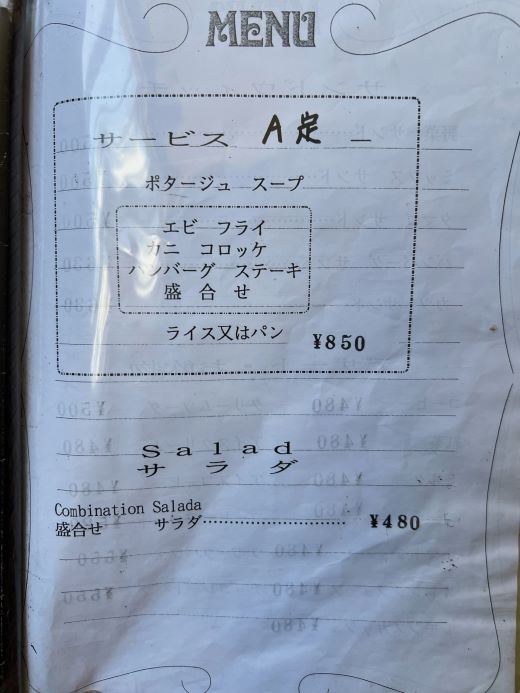 MENU
サービス A定
ポタージュ スープ
エビ フライ
カニ コロッケ
ハンバーグ ステーキ
盛 合 せ
ライス又はパン
¥850
Salad
サ ラ ダ
Combination Salada
盛合せ サラダ…………………… ¥480